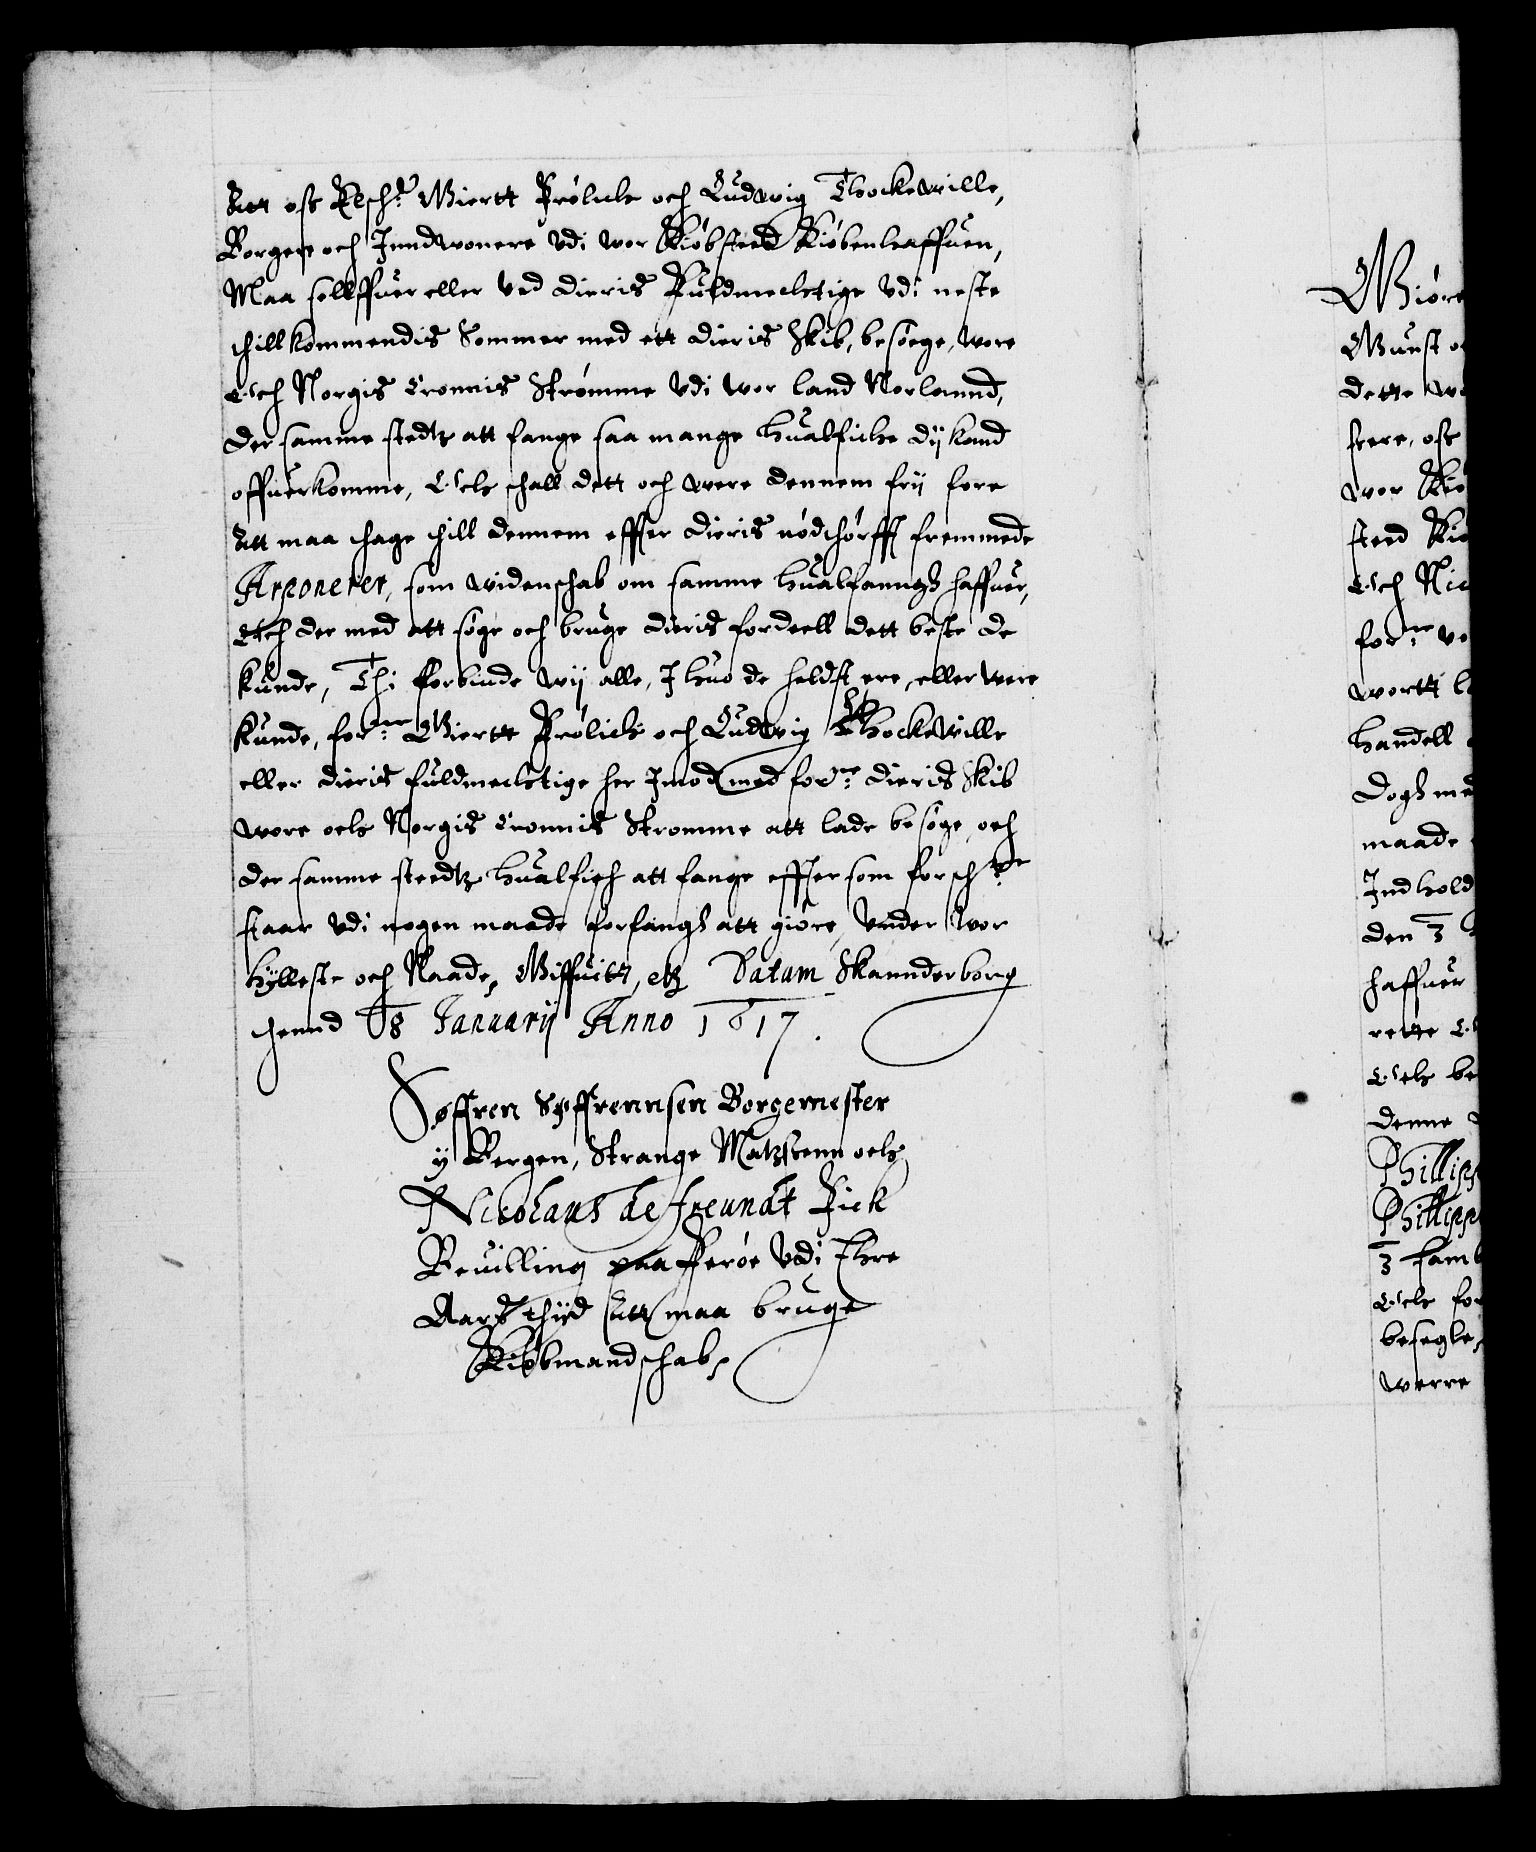 Att oss Elsch: Giertt Frölich och Ludwig Thockewille,
Borgere och Inndwonere vdi wor Kiöbsteed Kiöbenhaffuen,
Maa sellffuer eller ved dieris Fuldmechtige vdi neste
thillkommendis Sommer med ett dieris Skib, besöege, wore
Och Norgis Cronnis Strømme vdi wor land Norlannd,
der samme stedtz att fange saa mange hualfiske dij kand
offuerkomme, Och schall dett och were dennem frij fore
Att maa thage thill dennem effter dieris nödthörfft fremmede
Arponerer, som widenschab om samme hualfanngh haffuer,
Och der med att söge och bruge dieris fordeell dett beste de
kunde, Thi forbinde wij alle, I huo de heldst ere, eller were
kunde, for:ne Giertt Frölich och Ludwig Thockewille
eller dieris fuldmechtige her Imod med for:ne dieris Skib
wore och Norgis Cronnis Stromme att lade besöge, och
der samme steedtz hualfisch att fange effter som forsch:ne
staar vdi nogen maade forfangh att giöre, Vnder wor
hylleste och Naade, Giffuitt, etz Datum Skannderborg
thennd 18 Januarij Anno 1617.
Søffren Søffrennsen Borgemester
y Bergen, Strange Matzsenn och
Nicolaus de freundt Fick
Beuilling paa Færöe vdi Thre
Aars thijd att maa bruge
Kiöbmandschab,
Giöre
Gunst o
dette w
stere, oss
wor Kiö
steed Kiö
Och Nic
for:ne
wortt
handell
dogh med
maade
Indhold
den 3
haffuer
rette
Och be
denne
Phillip
Phillipp
3 sam
Och for
besegle,
werre